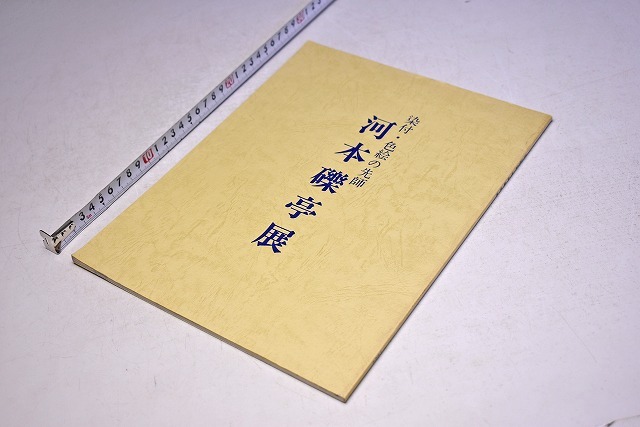 染付・色絵の先師
河本礫亭展
3 4 5 6 7 8 9 10 1 2 3 4 5 6 7 8 9 20 1 2 3 4 5 6 7 8 9 30 1 2 3